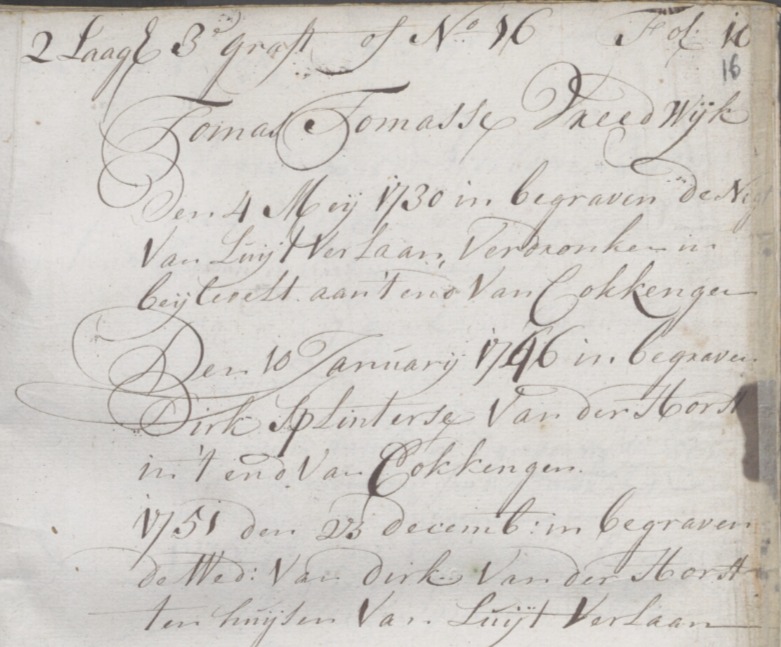 2 Laage 3e graft of No 16 Fol: 16
16
Tomas Tomasse Vreedwijk
Den 4 Meij 1730 in begraven de
Van Luijt Verlaan, Verdronken in
aan't end Van Cokkengen
Den 10 Januarij 1746 in begraven
Dirk Splinterse Van der Horst
in 't end Van Cokkengen
1751 den 23 decemb: in begraven
de Wed: Van dirk Van der Horst
ten huijsen Van Luijt Verlaan